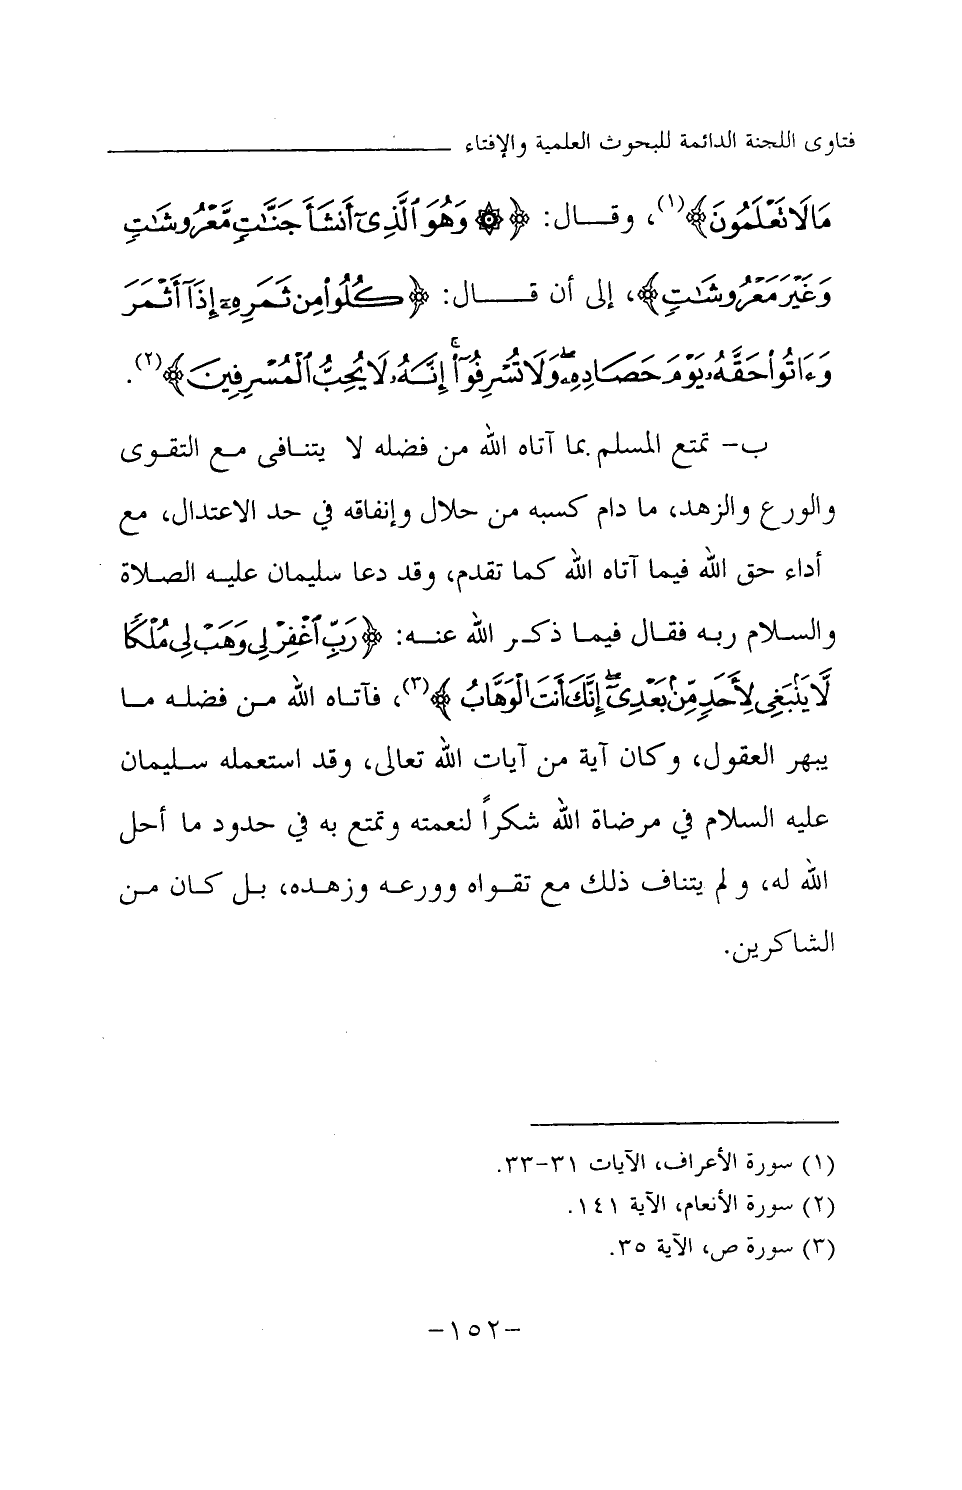 فتاوى اللجنة الدائمة للبحوث العلمية والإفتاء
مَا لَا تَعْلَمُونَ﴾(١)، وقـــال: ﴿۞ وَهُوَ ٱلَّذِىٓ أَنشَأَ جَنَّـٰتٍ مَّعْرُوشَـٰتٍ
وَغَيْرَ مَعْرُوشَـٰتٍ﴾، إلى أن قـــــال: ﴿كُلُوا۟ مِن ثَمَرِهِۦٓ إِذَآ أَثْمَرَ
وَءَاتُوا۟ حَقَّهُۥ يَوْمَ حَصَادِهِۦ ۖ وَلَا تُسْرِفُوٓا۟ ۚ إِنَّهُۥ لَا يُحِبُّ ٱلْمُسْرِفِينَ﴾(٢).
ب- تمتع المسلم بما آتاه الله من فضله لا يتنـافى مـع التقـوى
والورع والزهد، ما دام كسبه من حلال وإنفاقه في حد الاعتدال، مع
أداء حق الله فيما آتاه الله كما تقدم، وقد دعا سليمان عليـه الصـلاة
والسـلام ربـه فقـال فيمـا ذكـر الله عنـه: ﴿رَبِّ ٱغْفِرْ لِى وَهَبْ لِى مُلْكًا
لَّا يَنۢبَغِى لِأَحَدٍ مِّنۢ بَعْدِىٓ ۖ إِنَّكَ أَنتَ ٱلْوَهَّابُ﴾(٣)، فآتـاه الله مـن فضلـه مـا
يبهر العقول، وكان آية من آيات الله تعالى، وقد استعمله سـليمان
عليه السلام في مرضاة الله شكراً لنعمته وتمتع به في حدود ما أحل
الله له، ولم يتناف ذلك مع تقـواه وورعـه وزهـده، بـل كـان مـن
الشاكرين.
(١) سورة الأعراف، الآيات ٣١-٣٣.
(٢) سورة الأنعام، الآية ١٤١.
(٣) سورة ص، الآية ٣٥.
-١٥٢-